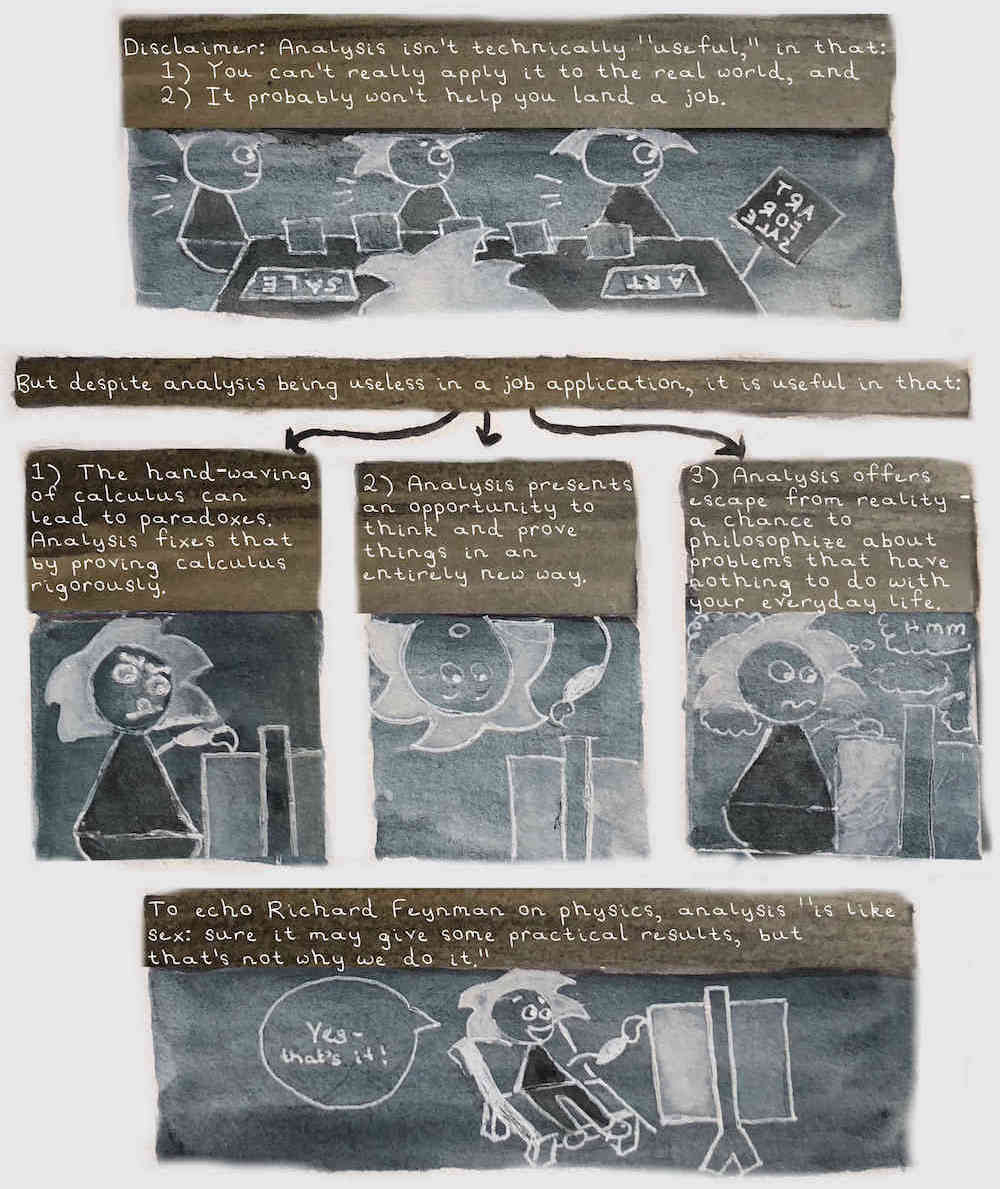 Disclaimer: Analysis isn't technically "useful," in that:
1) You can't really apply it to the real world, and
2) It probably won't help you land a job.
ART
FOR
SALE
SALE
ART
But despite analysis being useless in a job application, it is useful in that:
1) The hand-waving
of calculus can
lead to paradoxes.
Analysis fixes that
by proving calculus
rigorously.
2) Analysis presents
an opportunity to
think and prove
things in an
entirely new way.
3) Analysis offers
escape from reality -
a chance to
philosophize about
problems that have
nothing to do with
your everyday life.
Hmm
To echo Richard Feynman on physics, analysis "is like
sex: sure it may give some practical results, but
that's not why we do it."
Yes-
that's it!